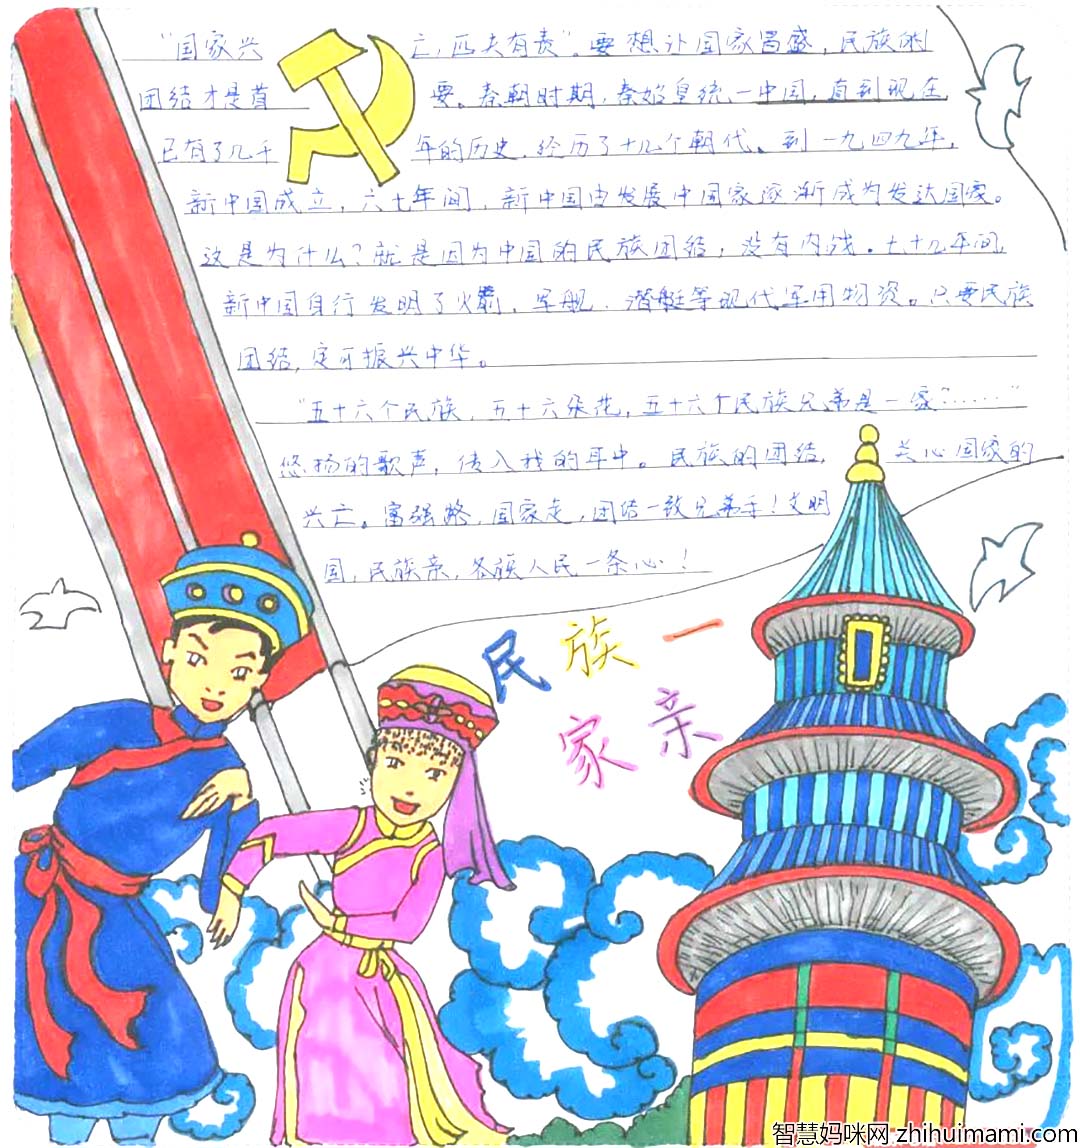 “国家兴亡,匹夫有责”。要想让国家昌盛,民族的
团结才是首要。秦朝时期,秦始皇统一中国,直到现在
已有了几千年的历史,经历了十几个朝代。到一九四九年,
新中国成立,六七年间,新中国由发展中国家逐渐成为发达国家。
这是为什么?就是因为中国的民族团结,没有内战。七十几年间,
新中国自行发明了火箭,军舰,潜艇等现代军用物资。只要民族
团结,定可振兴中华。
“五十六个民族,五十六朵花,五十六个民族兄弟是一家?……”
悠扬的歌声,传入我的耳中。民族的团结,关心国家的
兴亡。富强路,国家走,团结一致兄弟手!文明
国,民族亲,各族人民一条心!
民族一
家亲
智慧妈咪网 zhihuimami.com